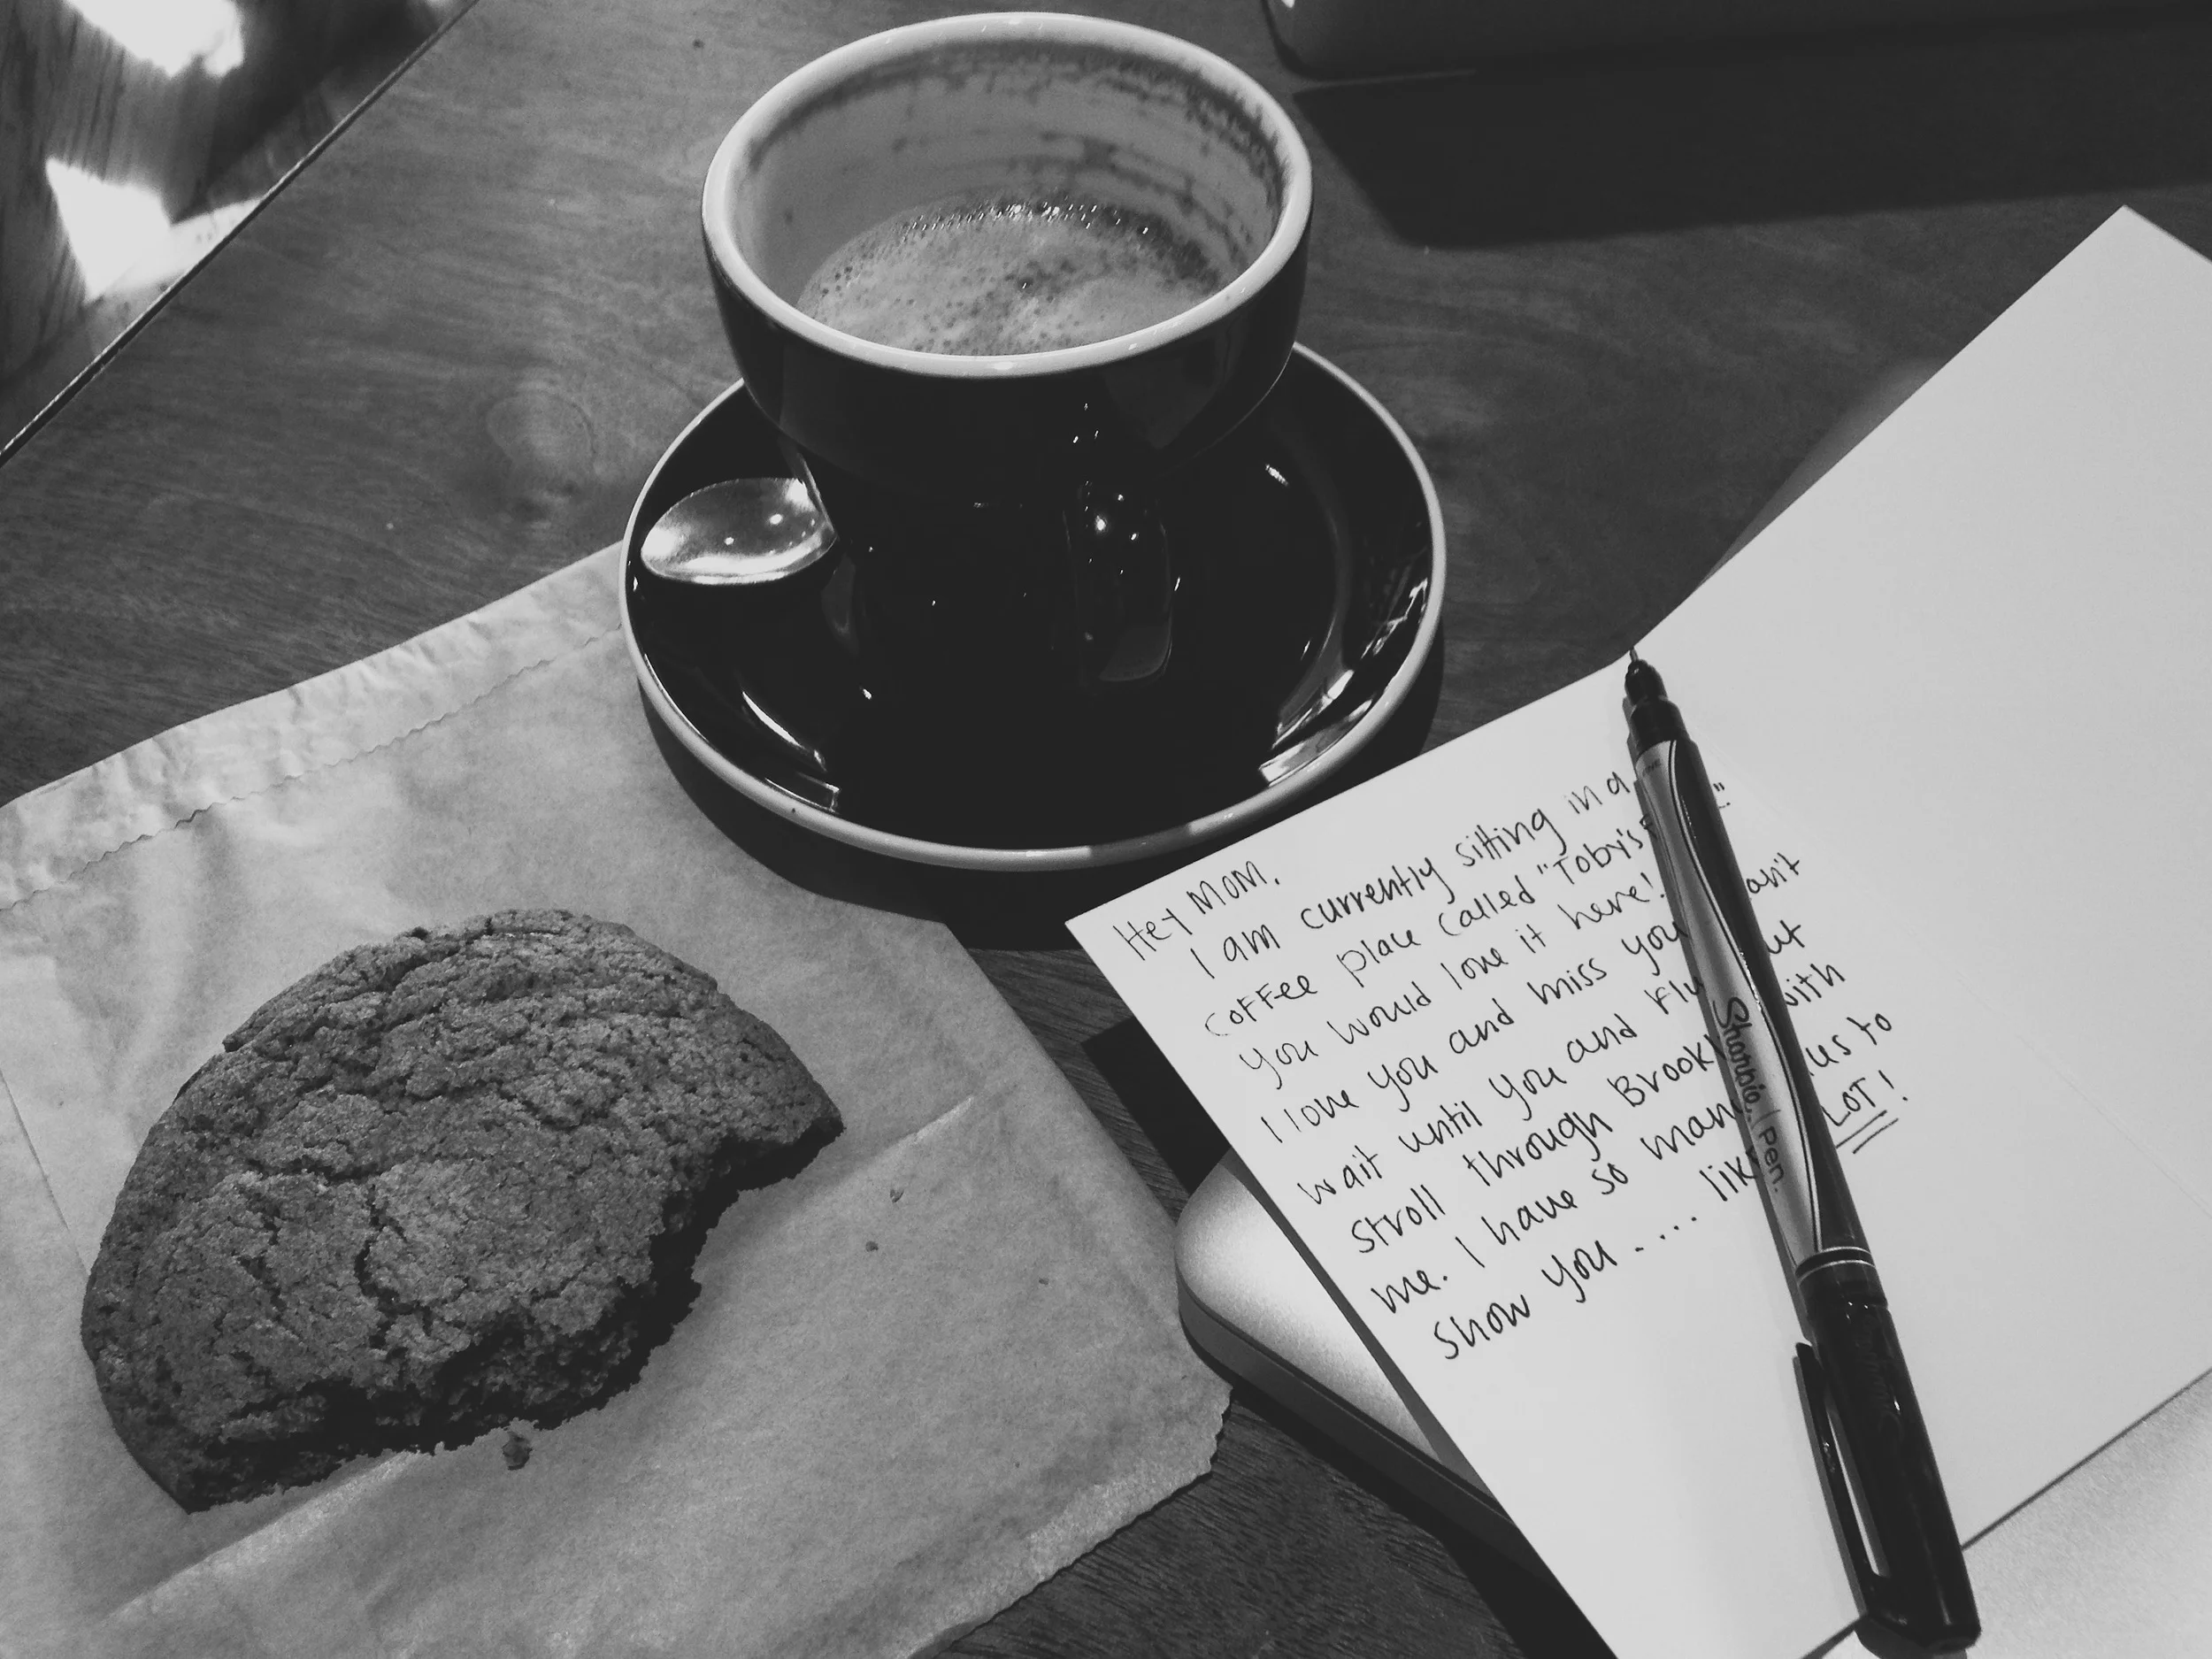 Hey Mom,
I am currently sitting in a
coffee place called "Toby's "
you would love it here!
I love you and miss you
wait until you and
stroll through with
me. I have so us to
show you .... LOT!
Sharpie Pen.